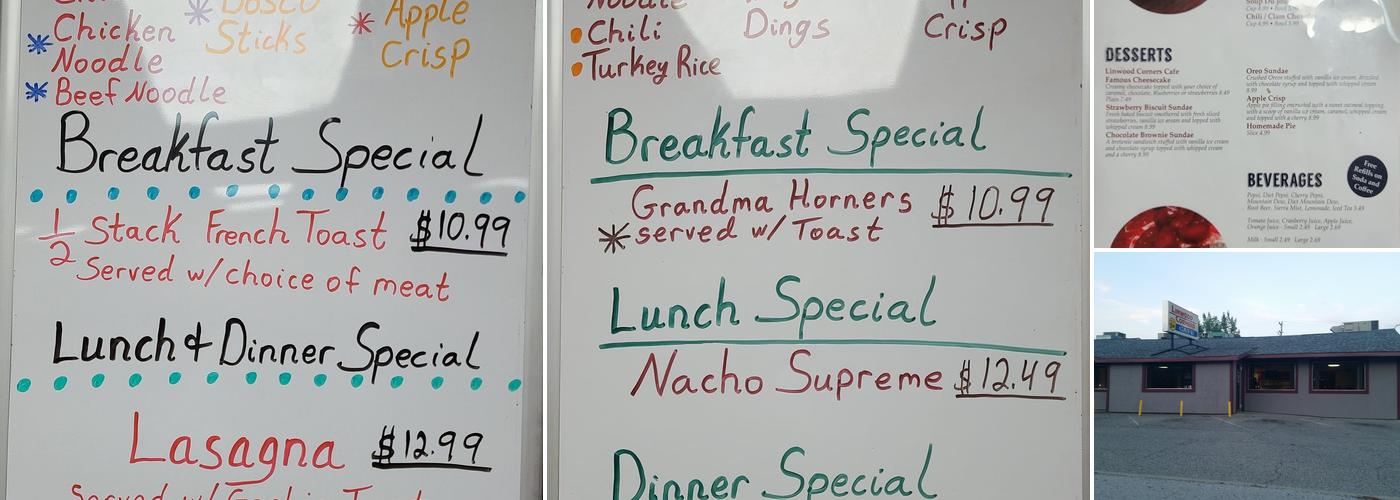 Bosco
Sticks
Apple
Crisp
Chicken
Noodle
Beef Noodle
Breakfast Special
1/2 Stack French Toast $10.99
Served w/choice of meat
Lunch & Dinner Special
Lasagna $12.99
Served w/
Noodle
Chili
Turkey Rice
Dings
Crisp
Breakfast Special
Grandma Horners $10.99
served w/ Toast
Lunch Special
Nacho Supreme $12.49
Dinner Special
Soup Du Jour
Chili / Clam
DESSERTS
Linwood Corners Cafe
Famous Cheesecake
Creamy cheesecake topped with your choice of
caramel, chocolate, blueberries or strawberries 8.49
Plain 7.49
Strawberry Biscuit Sundae
Fresh baked biscuit smothered with fresh sliced
strawberries, vanilla ice cream and topped with
whipped cream 8.99
Chocolate Brownie Sundae
A brownie sandwich stuffed with vanilla ice cream
and chocolate syrup topped with whipped cream
and a cherry 8.99
Oreo Sundae
Crushed Oreos stuffed with vanilla ice cream, drizzled
with chocolate syrup and topped with whipped cream
8.99
Apple Crisp
Apple pie filling encrusted with a sweet oatmeal topping,
with a scoop of vanilla ice cream, caramel, whipped cream
and topped with a cherry 8.99
Homemade Pie
Slice 4.99
Free
Refills on
Soda and
Coffee
BEVERAGES
Pepsi, Diet Pepsi, Cherry Pepsi,
Mountain Dew, Diet Mountain Dew,
Root Beer, Sierra Mist, Lemonade, Iced Tea 3.49
Tomato Juice, Cranberry Juice, Apple Juice,
Orange Juice - Small 2.49 Large 2.69
Milk - Small 2.49 Large 2.69
Linwood
Corners